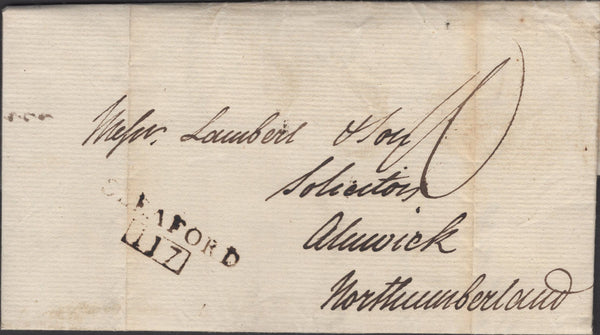 Messrs. Lambert & Son
Solicitors
Alnwick
Northumberland
SLEAFORD
117